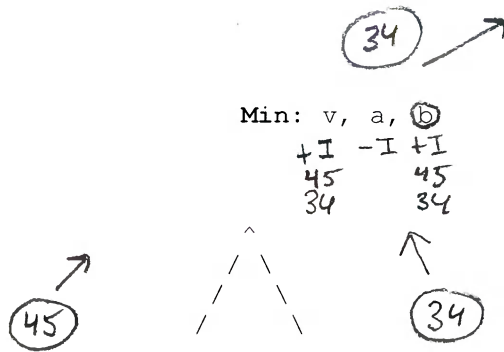 34
Min: v, a, b
+I -I +I
45 45
34 34
45 34